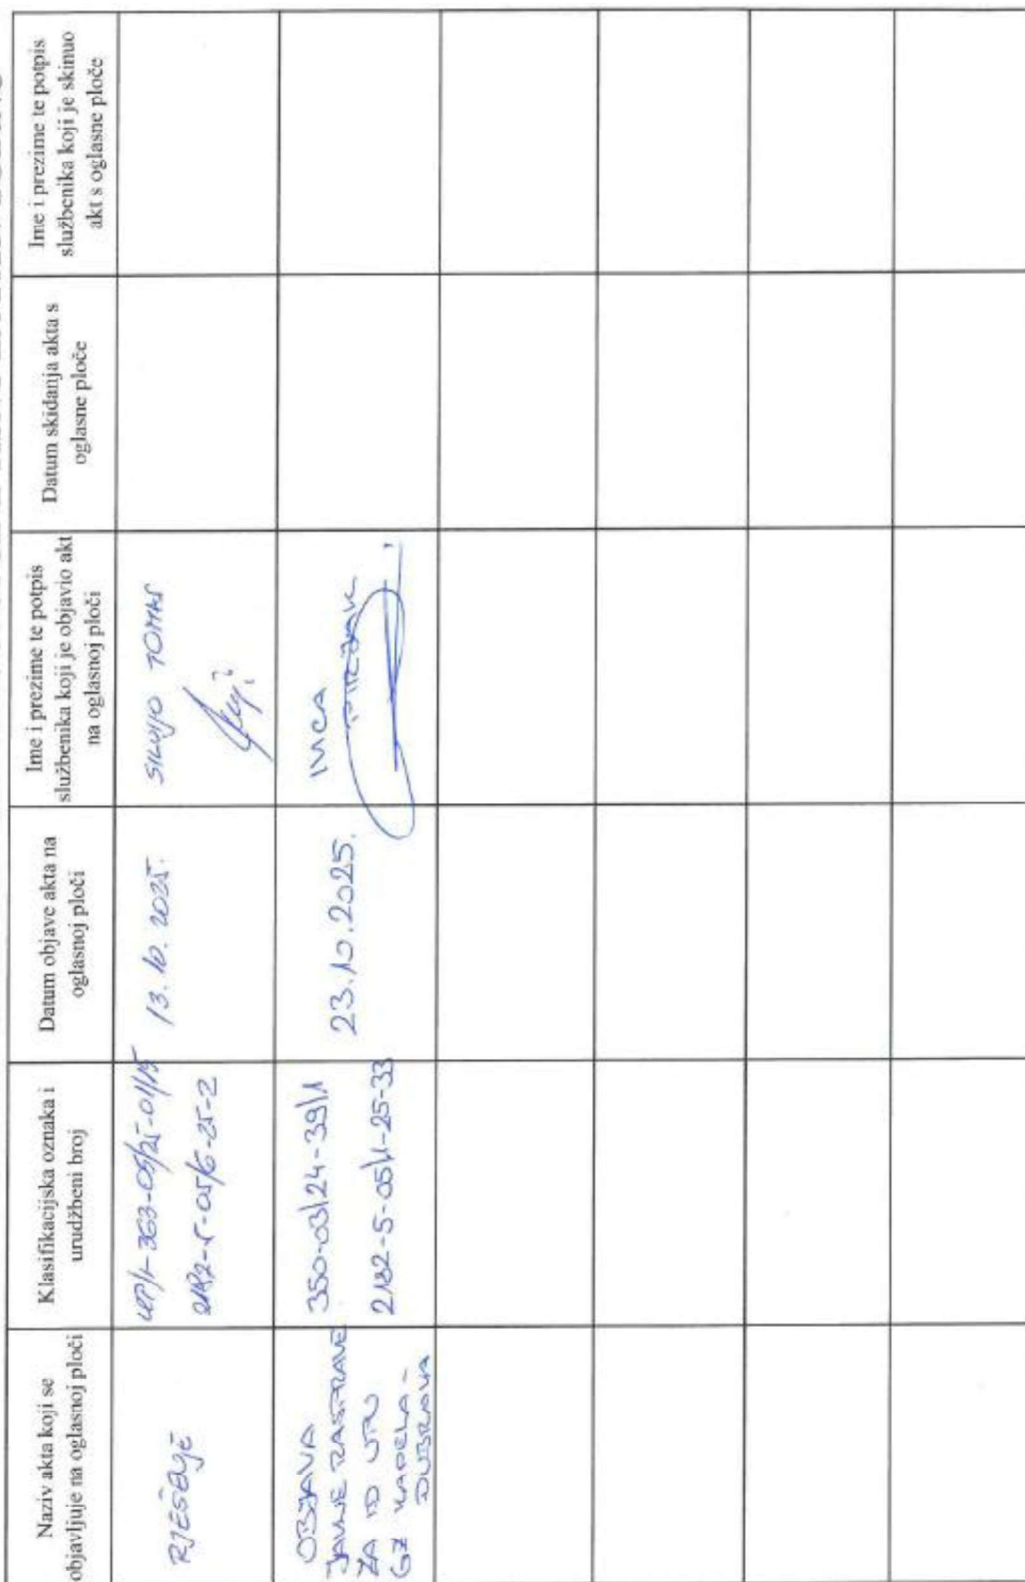 Naziv akta koji se
objavljuje na oglasnoj ploči
Klasifikacijska oznaka i
urudžbeni broj
Datum objave akta na
oglasnoj ploči
Ime i prezime te potpis
službenika koji je objavio akt
na oglasnoj ploči
Datum skidanja akta s
oglasne ploče
Ime i prezime te potpis
službenika koji je skinuo
akt s oglasne ploče
RJEŠENJE
UP/I-363-05/25-01/15
2182-5-05/6-25-2
13. 10. 2025.
SILVIJO TOMAS
OBJAVA
JAVNE RASPRAVE
ZA ID UPU
GZ KAPELA-
DUBRAVA
350-03/24-39/1
2182-5-05/1-25-33
23.10.2025.
IVICA